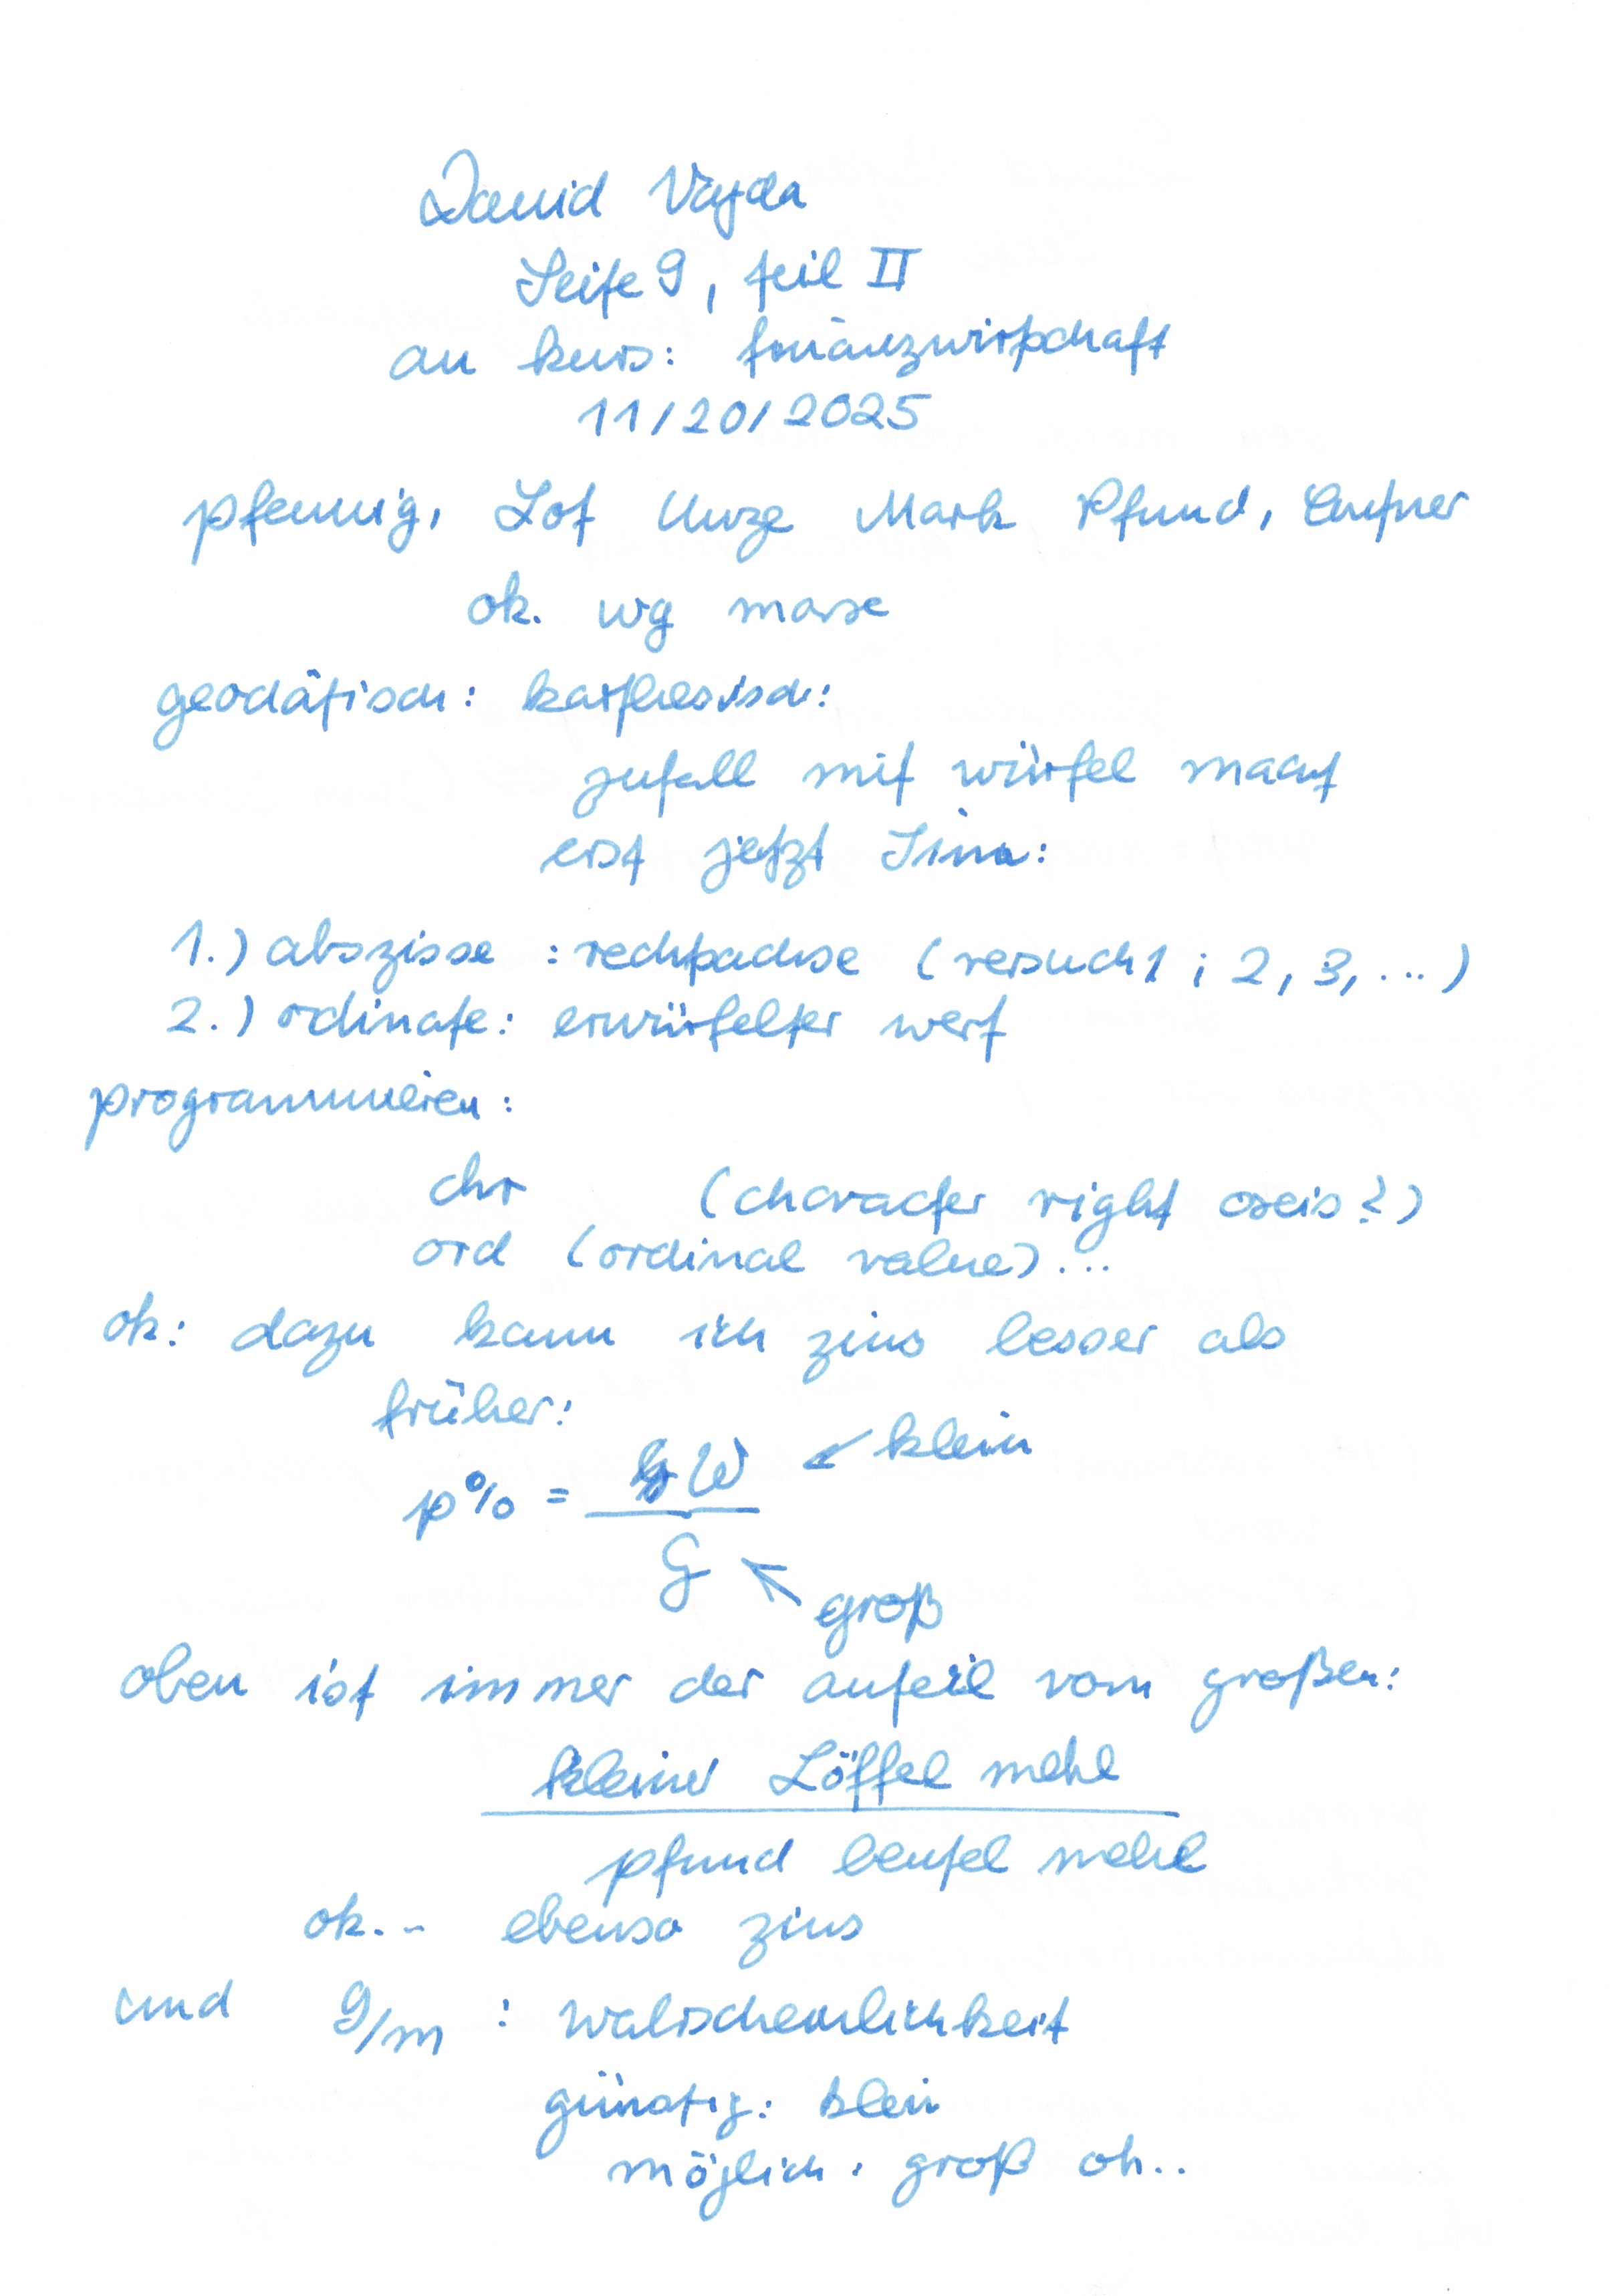 David Vajda
Seite 9, teil II
an kurs: finanzwirtschaft
11/20/2025
pfennig, Lot Unze Mark Pfund, Zentner
ok. wg masse
geodätisch: karthesisch:
zufall mit würfel macht
erst jetzt Sinn:
1.) abszisse : rechtsachse (versuch 1 ; 2, 3, ...)
2.) ordinate: erwürfelter wert
programmieren:
chr (character right axis?)
ord (ordinal value)...
ok: dazu kann ich zins besser als
früher:
p% = W ↙ klein
G ↖ groß
oben ist immer der anteil vom großen:
kleiner Löffel mehl
pfund beutel mehl
ok.- ebenso zins
und g/m : wahrscheinlichkeit
günstig: klein
möglich: groß oh..